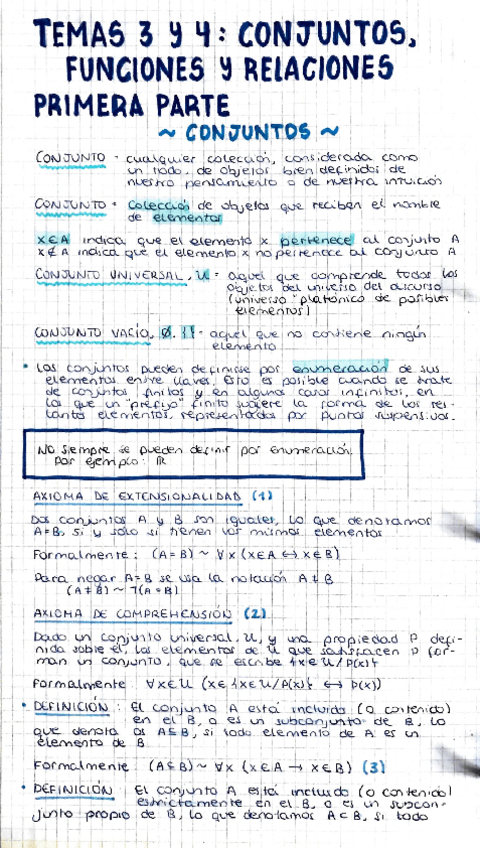 TEMAS 3 Y 4: CONJUNTOS,
FUNCIONES Y RELACIONES
PRIMERA PARTE
~ CONJUNTOS ~
CONJUNTO - cualquier colección, considerada como
un todo, de objetos bien definidos de
nuestro pensamiento o de nuestra intuición
CONJUNTO - Colección de objetos que reciben el nombre
de elementos
x∈A indica que el elemento x pertenece al conjunto A
x∉A indica que el elemento x no pertenece al conjunto A
CONJUNTO UNIVERSAL, U - aquel que comprende todos los
objetos del universo del discurso
(universo "platónico de posibles
elementos)
CONJUNTO VACÍO, Ø, {} - aquel que no contiene ningún
elemento
• Los conjuntos pueden definirse por enumeración de sus
elementos entre llaves. Esto es posible cuando se trate
de conjuntos finitos y en algunos casos infinitos, en
los que un "prefijo" finito sugiere la forma de los res-
tantes elementos, representados por puntos suspensivos.
NO siempre se pueden definir por enumeración.
Por ejemplo: ℝ
AXIOMA DE EXTENSIONALIDAD (1)
Dos conjuntos A y B son iguales, lo que denotamos
A=B, si y sólo si tienen los mismos elementos
Formalmente: (A=B) ~ ∀x (x∈A ↔ x∈B)
Para negar A=B se usa la notación A≠B
(A≠B) ~ ¬(A=B)
AXIOMA DE COMPREHENSIÓN (2)
Dado un conjunto universal, U, y una propiedad P defi-
nida sobre él, los elementos de U que satisfacen P for-
man un conjunto, que se escribe {x∈U/P(x)}
Formalmente: ∀x∈U (x∈{x∈U/P(x)} ↔ P(x))
• DEFINICIÓN: El conjunto A está incluido (o contenido)
en el B, o es un subconjunto de B, lo
que denota os A⊆B, si todo elemento de A es un
elemento de B
Formalmente: (A⊆B) ~ ∀x (x∈A → x∈B) (3)
• DEFINICIÓN: El conjunto A está incluido (o contenido)
estrictamente en el B, o es un subcon-
junto propio de B, lo que denotamos A⊂B, si todo